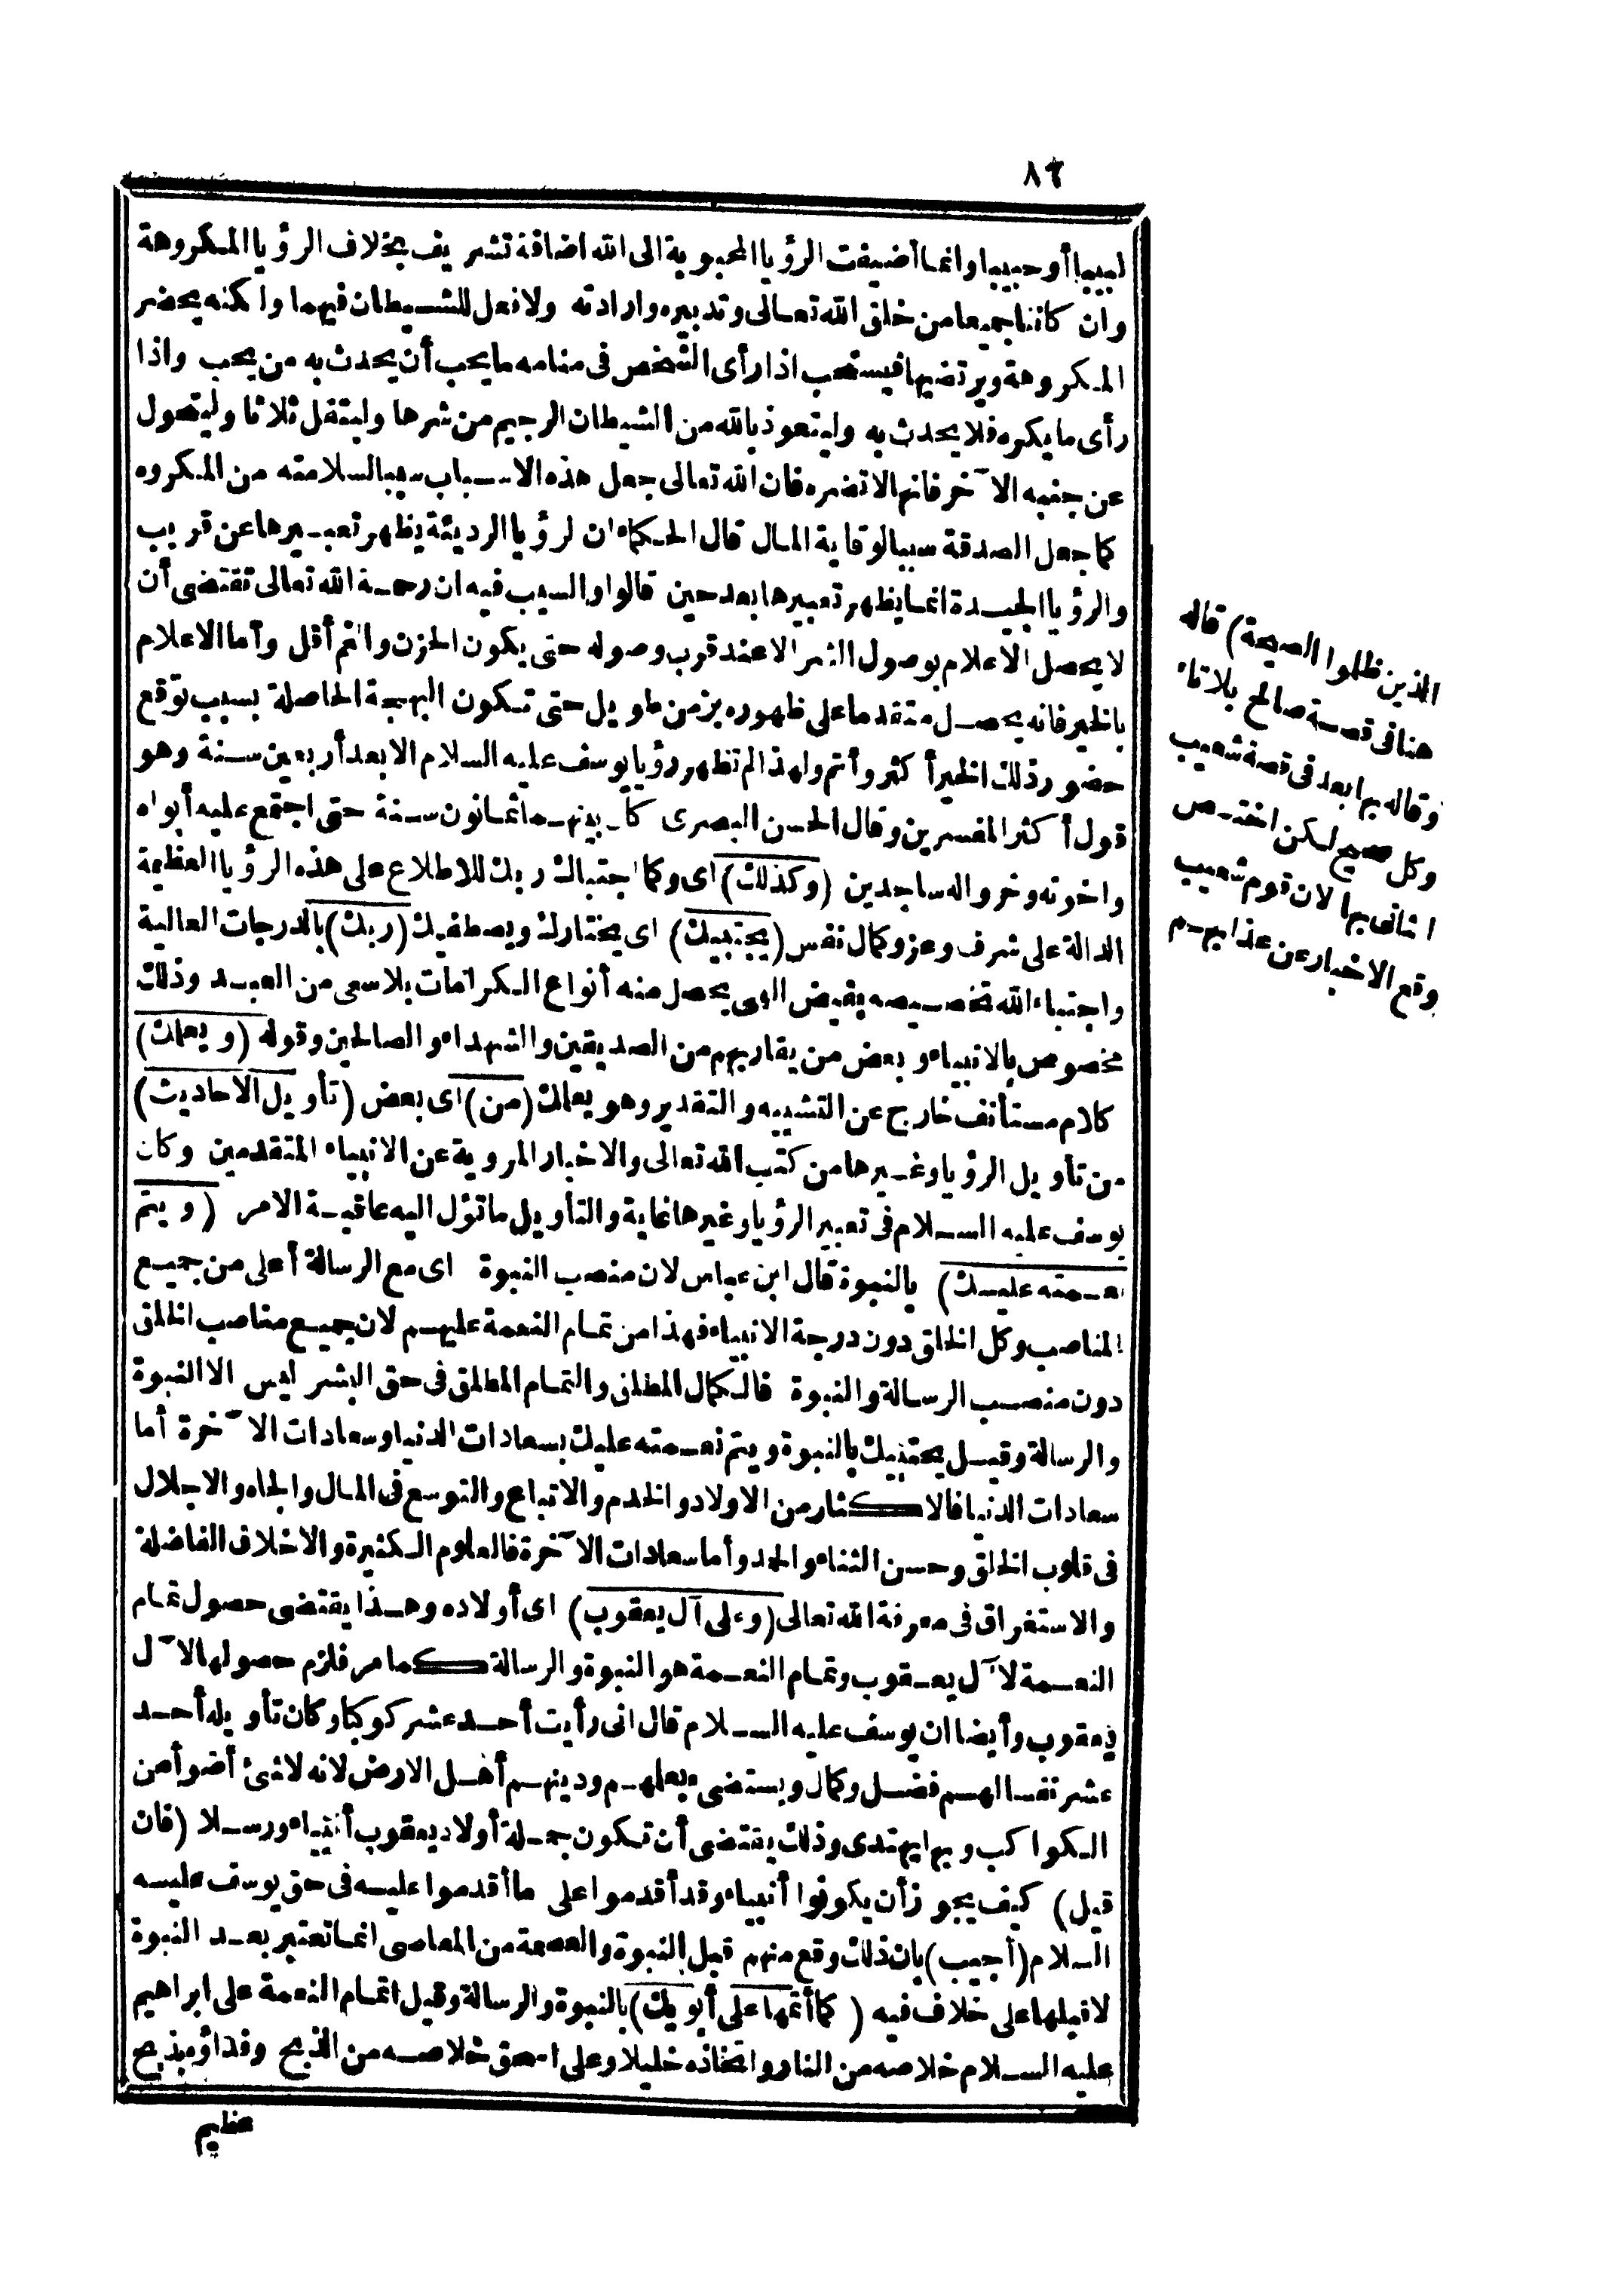 ٨٣
لبيبا أو حبيبا وانما أضيفت الرؤيا المحبوبة الى الله اضافة تشريف بخلاف الرؤيا المكروهة
وان كانتا جميعا من خلق الله تعالى وتدبيره وارادته ولا فعل للشيطان فيهما ولكنه يحضر
المكروهة ويرتضيها فيستحب اذا رأى الشخص فى منامه ما يحب أن يحدث به من يحب واذا
رأى ما يكره فلا يحدث به وليتعوذ بالله من الشيطان الرجيم من شرها وليتفل ثلاثا وليتحول
عن جنبه الآخر فانها لا تضره فان الله تعالى جعل هذه الاسباب سببا لسلامته من المكروه
كما جعل الصدقة سببا لوقاية المال قال الحكماء ان لرؤيا الرديئة يظهر تعبيرها عن قريب
والرؤيا الجيدة انما يظهر تعبيرها بعد حين قالوا والسبب فيه ان رحمة الله تعالى تقتضى أن
لا يحصل الاعلام بوصول الشر الا عند قرب وصوله حتى يكون الحزن والغم أقل وأما الاعلام
بالخير فانه يحصل متقدما على ظهوره بزمن طويل حتى تكون البهجة الحاصلة بسبب توقع
حضور ذلك الخير أكثر وأتم ولهذا لم تظهر رؤيا يوسف عليه السلام الا بعد أربعين سنة وهو
قول أكثر المفسرين وقال الحسن البصرى كان بينهما ثمانون سنة حتى اجتمع عليه أبواه
واخوته وخرواله ساجدين (وكذلك) اى وكما اجتباك ربك للاطلاع على هذه الرؤيا العظيمة
الدالة على شرف وعز وكمال نفس (يجتبيك) اى يختارك ويصطفيك (ربك) بالدرجات العالية
واجتباء الله تخصيصه بفيض الهى يحصل منه أنواع الكرامات بلا سعى من العبد وذلك
مخصوص بالانبياء وبعض من يقاربهم من الصديقين والشهداء والصالحين وقوله (ويعلمك)
كلام مستأنف خارج عن التشبيه والتقدير وهو يعلمك (من) اى بعض (تأويل الاحاديث)
من تأويل الرؤيا وغيرها من كتب الله تعالى والاخبار المروية عن الانبياء المتقدمين وكان
يوسف عليه السلام فى تعبير الرؤيا وغيرها غاية والتأويل ما تؤل اليه عاقبة الامر (ويتم
نعمته عليك) بالنبوة قال ابن عباس لان منصب النبوة اى مع الرسالة أعلى من جميع
المناصب وكل الخلق دون درجة الانبياء فهذا من تمام النعمة عليهم لان جميع مناصب الخلق
دون منصب الرسالة والنبوة فالكمال المطلق والتمام المطلق فى حق البشر ليس الا النبوة
والرسالة وقيل يجتبيك بالنبوة ويتم نعمته عليك بسعادات الدنيا وسعادات الآخرة أما
سعادات الدنيا فالاكثار من الاولاد والخدم والاتباع والتوسع فى المال والجاه والاجلال
فى قلوب الخلق وحسن الثناء والحمد وأما سعادات الآخرة فالعلوم الكثيرة والاخلاق الفاضلة
والاستغراق فى معرفة الله تعالى (وعلى آل يعقوب) اى أولاده وهذا يقتضى حصول تمام
النعمة لآل يعقوب وتمام النعمة هو النبوة والرسالة كما مر فلزم حصولها لآل
يعقوب وأيضا ان يوسف عليه السلام قال انى رأيت أحد عشر كوكبا وكان تأويله أحد
عشر نفسا لهم فضل وكمال ويستضىء بعلمهم ودينهم أهل الارض لانه لا شئ أضوأ من
الكواكب وبها يهتدى وذلك يقتضى أن تكون جملة أولاد يعقوب أنبياء ورسلا (فان
قيل) كيف يجوز أن يكونوا أنبياء وقد أقدموا على ما أقدموا عليه فى حق يوسف عليه
السلام (أجيب) بان ذلك وقع منهم قبل النبوة والعصمة من المعاصى انما تعتبر بعد النبوة
لا قبلها على خلاف فيه (كما أتمها على أبويك) بالنبوة والرسالة وقيل اتمام النعمة على ابراهيم
عليه السلام خلاصه من النار واتخاذه خليلا وعلى اسحق خلاصه من الذبح وفداؤه بذبح
عظيم
الذين ظلموا الصيحة) قاله
هنا فى قصة صالح بلا تاء
وقاله بها بعد فى قصة شعيب
وكل صحيح لكن اختص
الثانى بها لان قوم شعيب
وقع الاخبار عن عذابهم